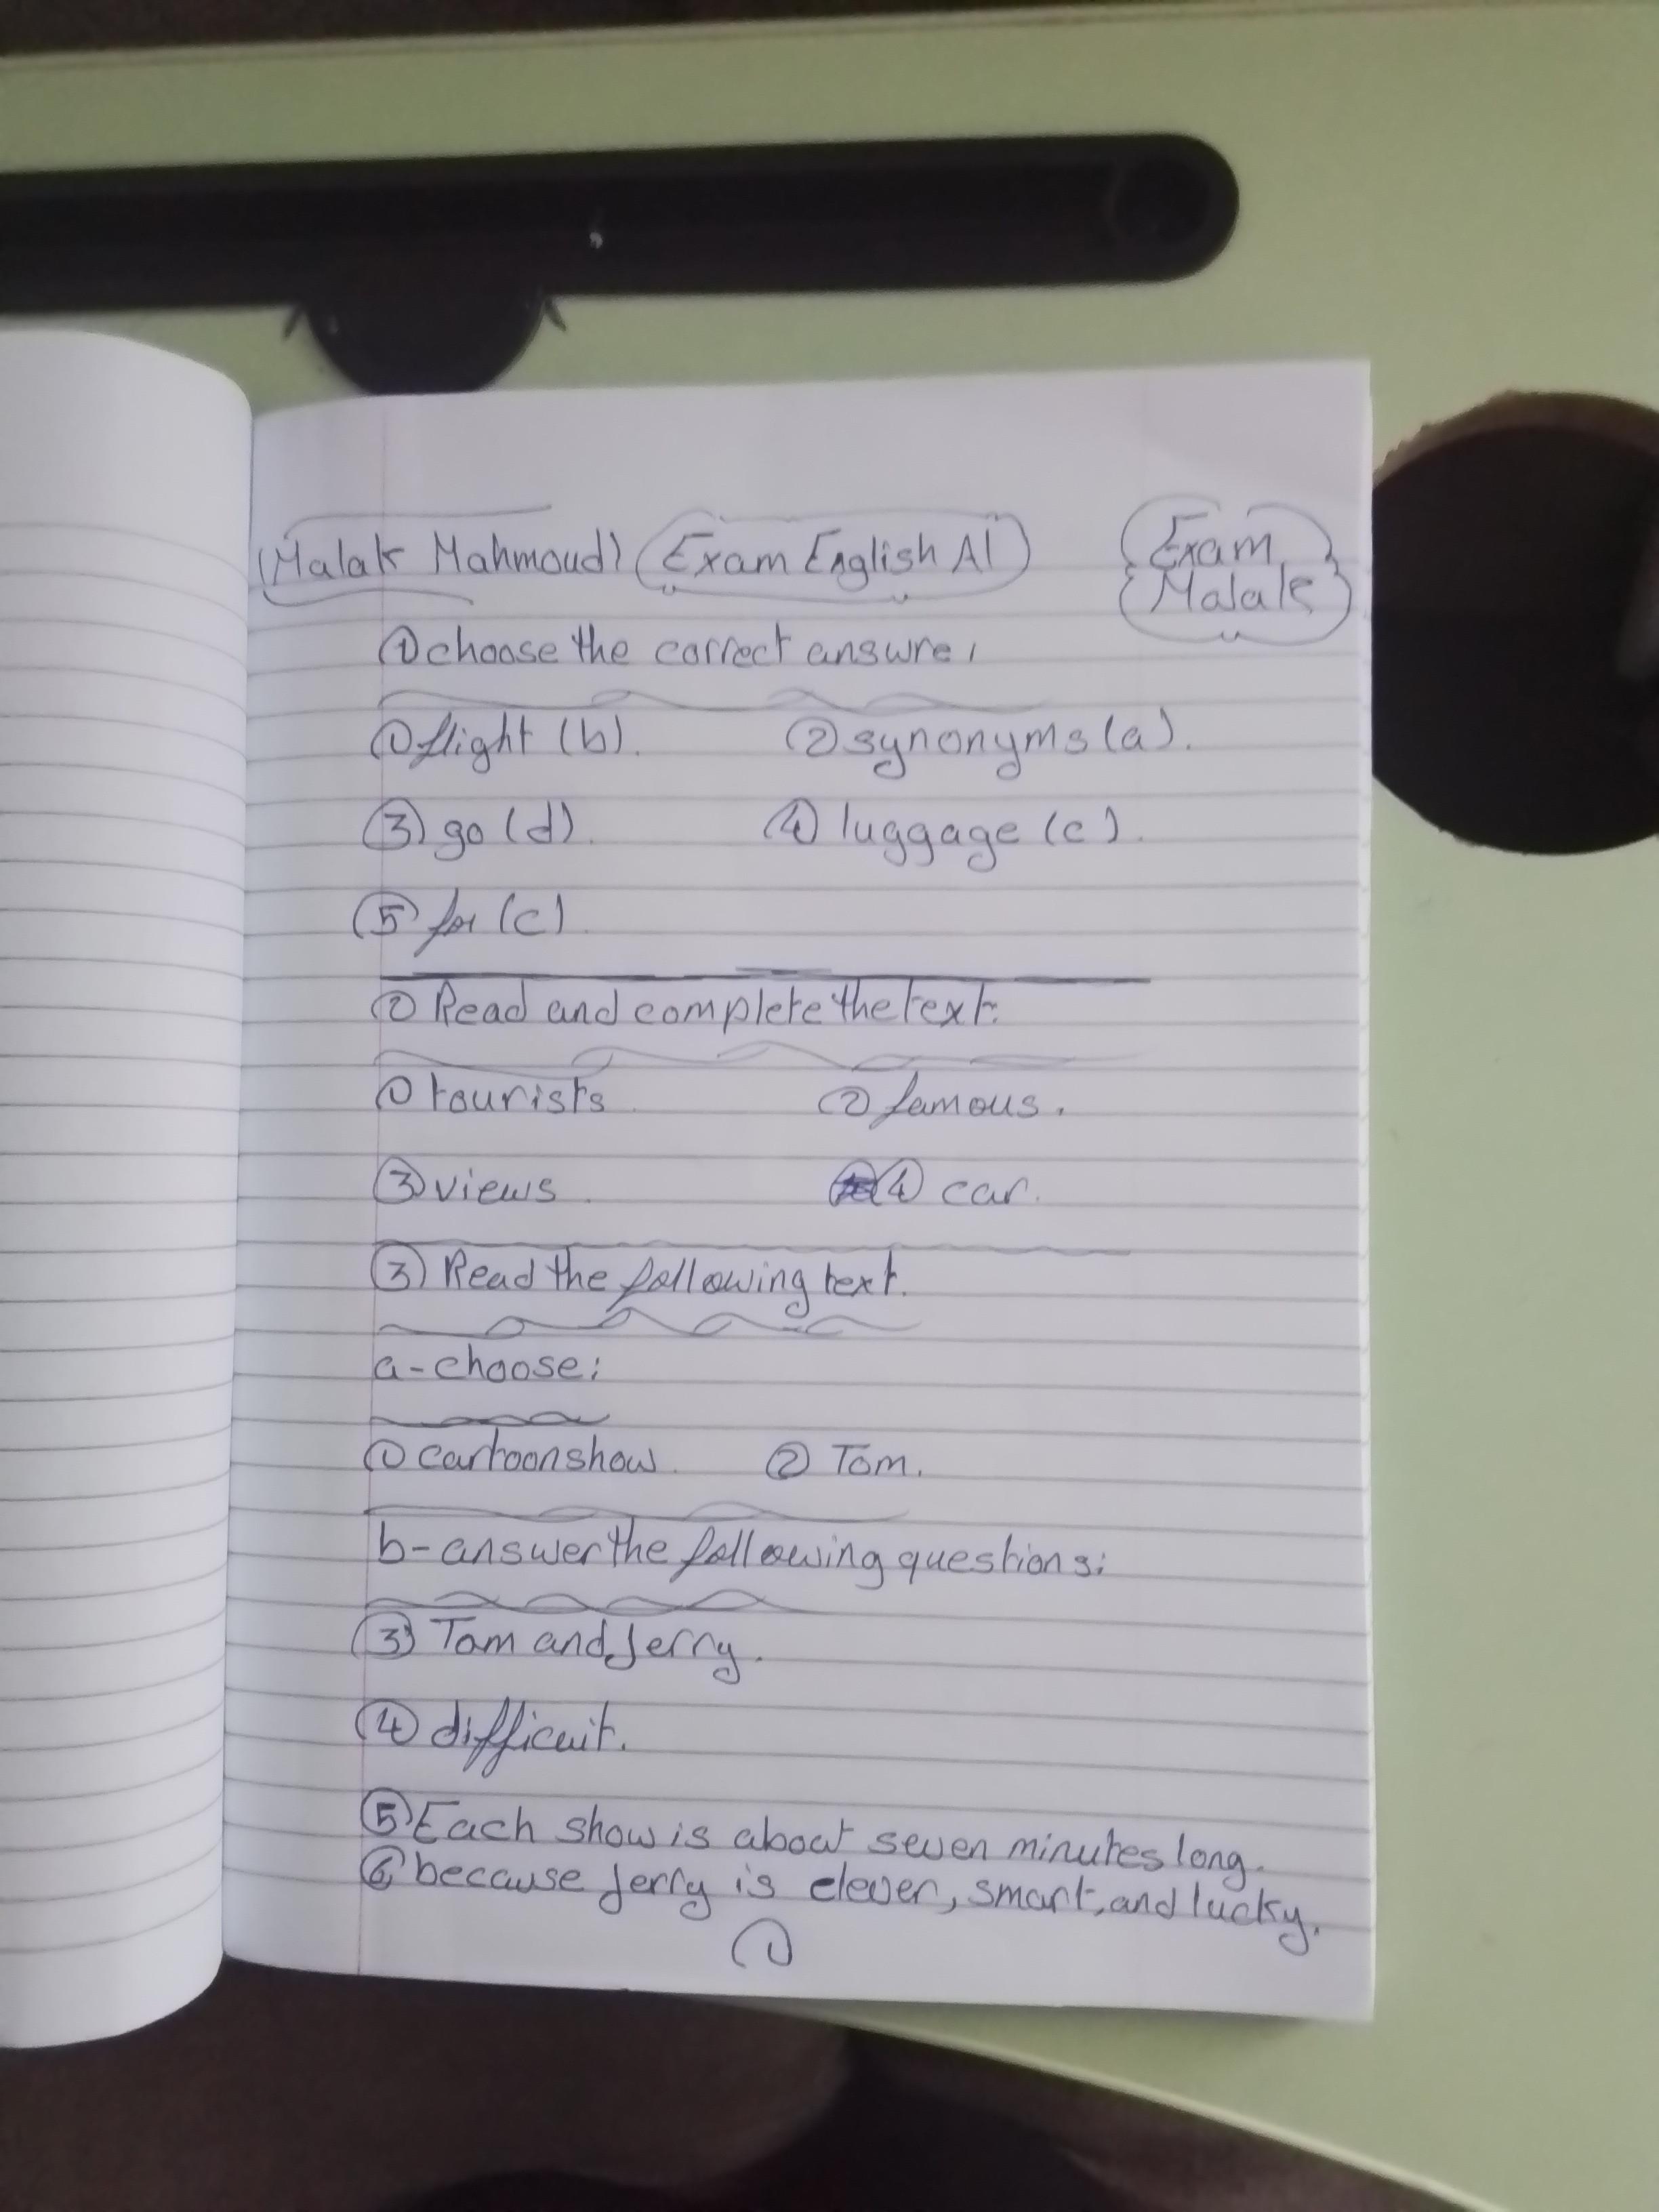 (Malak Mahmoud) (Exam English A1) Exam
Malak
① choose the correct answre:
① flight (b). ② synonyms (a).
③ go (d). ④ luggage (c).
⑤ for (c).
② Read and complete the text:
① tourists. ② famous.
③ views. ④ car.
③ Read the following text.
a- choose:
① cartoon show. ② Tom.
b- answer the following questions:
③ Tom and Jerry.
④ difficuit.
⑤ Each show is about seven minutes long.
⑥ because Jerry is clever, smart, and lucky.
①